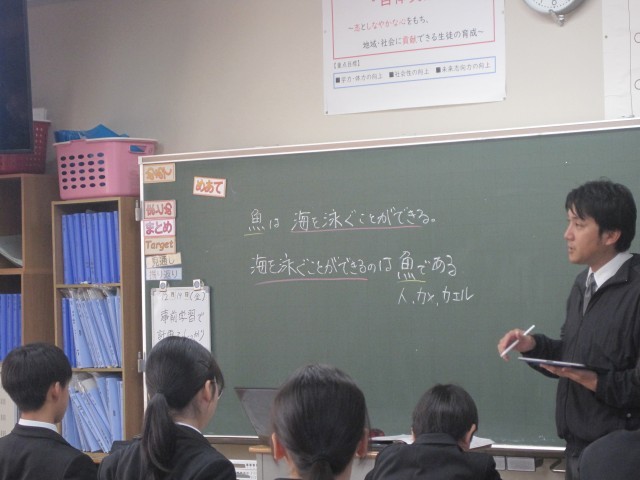 ～志としなやかな心をもち、
地域・社会に貢献できる生徒の育成～
【重点目標】
■学力・体力の向上　■社会性の向上　■未来志向力の向上
めあて
まとめ
Target
見通し
振り返り
魚は 海を泳ぐことができる。
海を泳ぐことができるのは 魚である
人、カメ、カエル
事前学習で